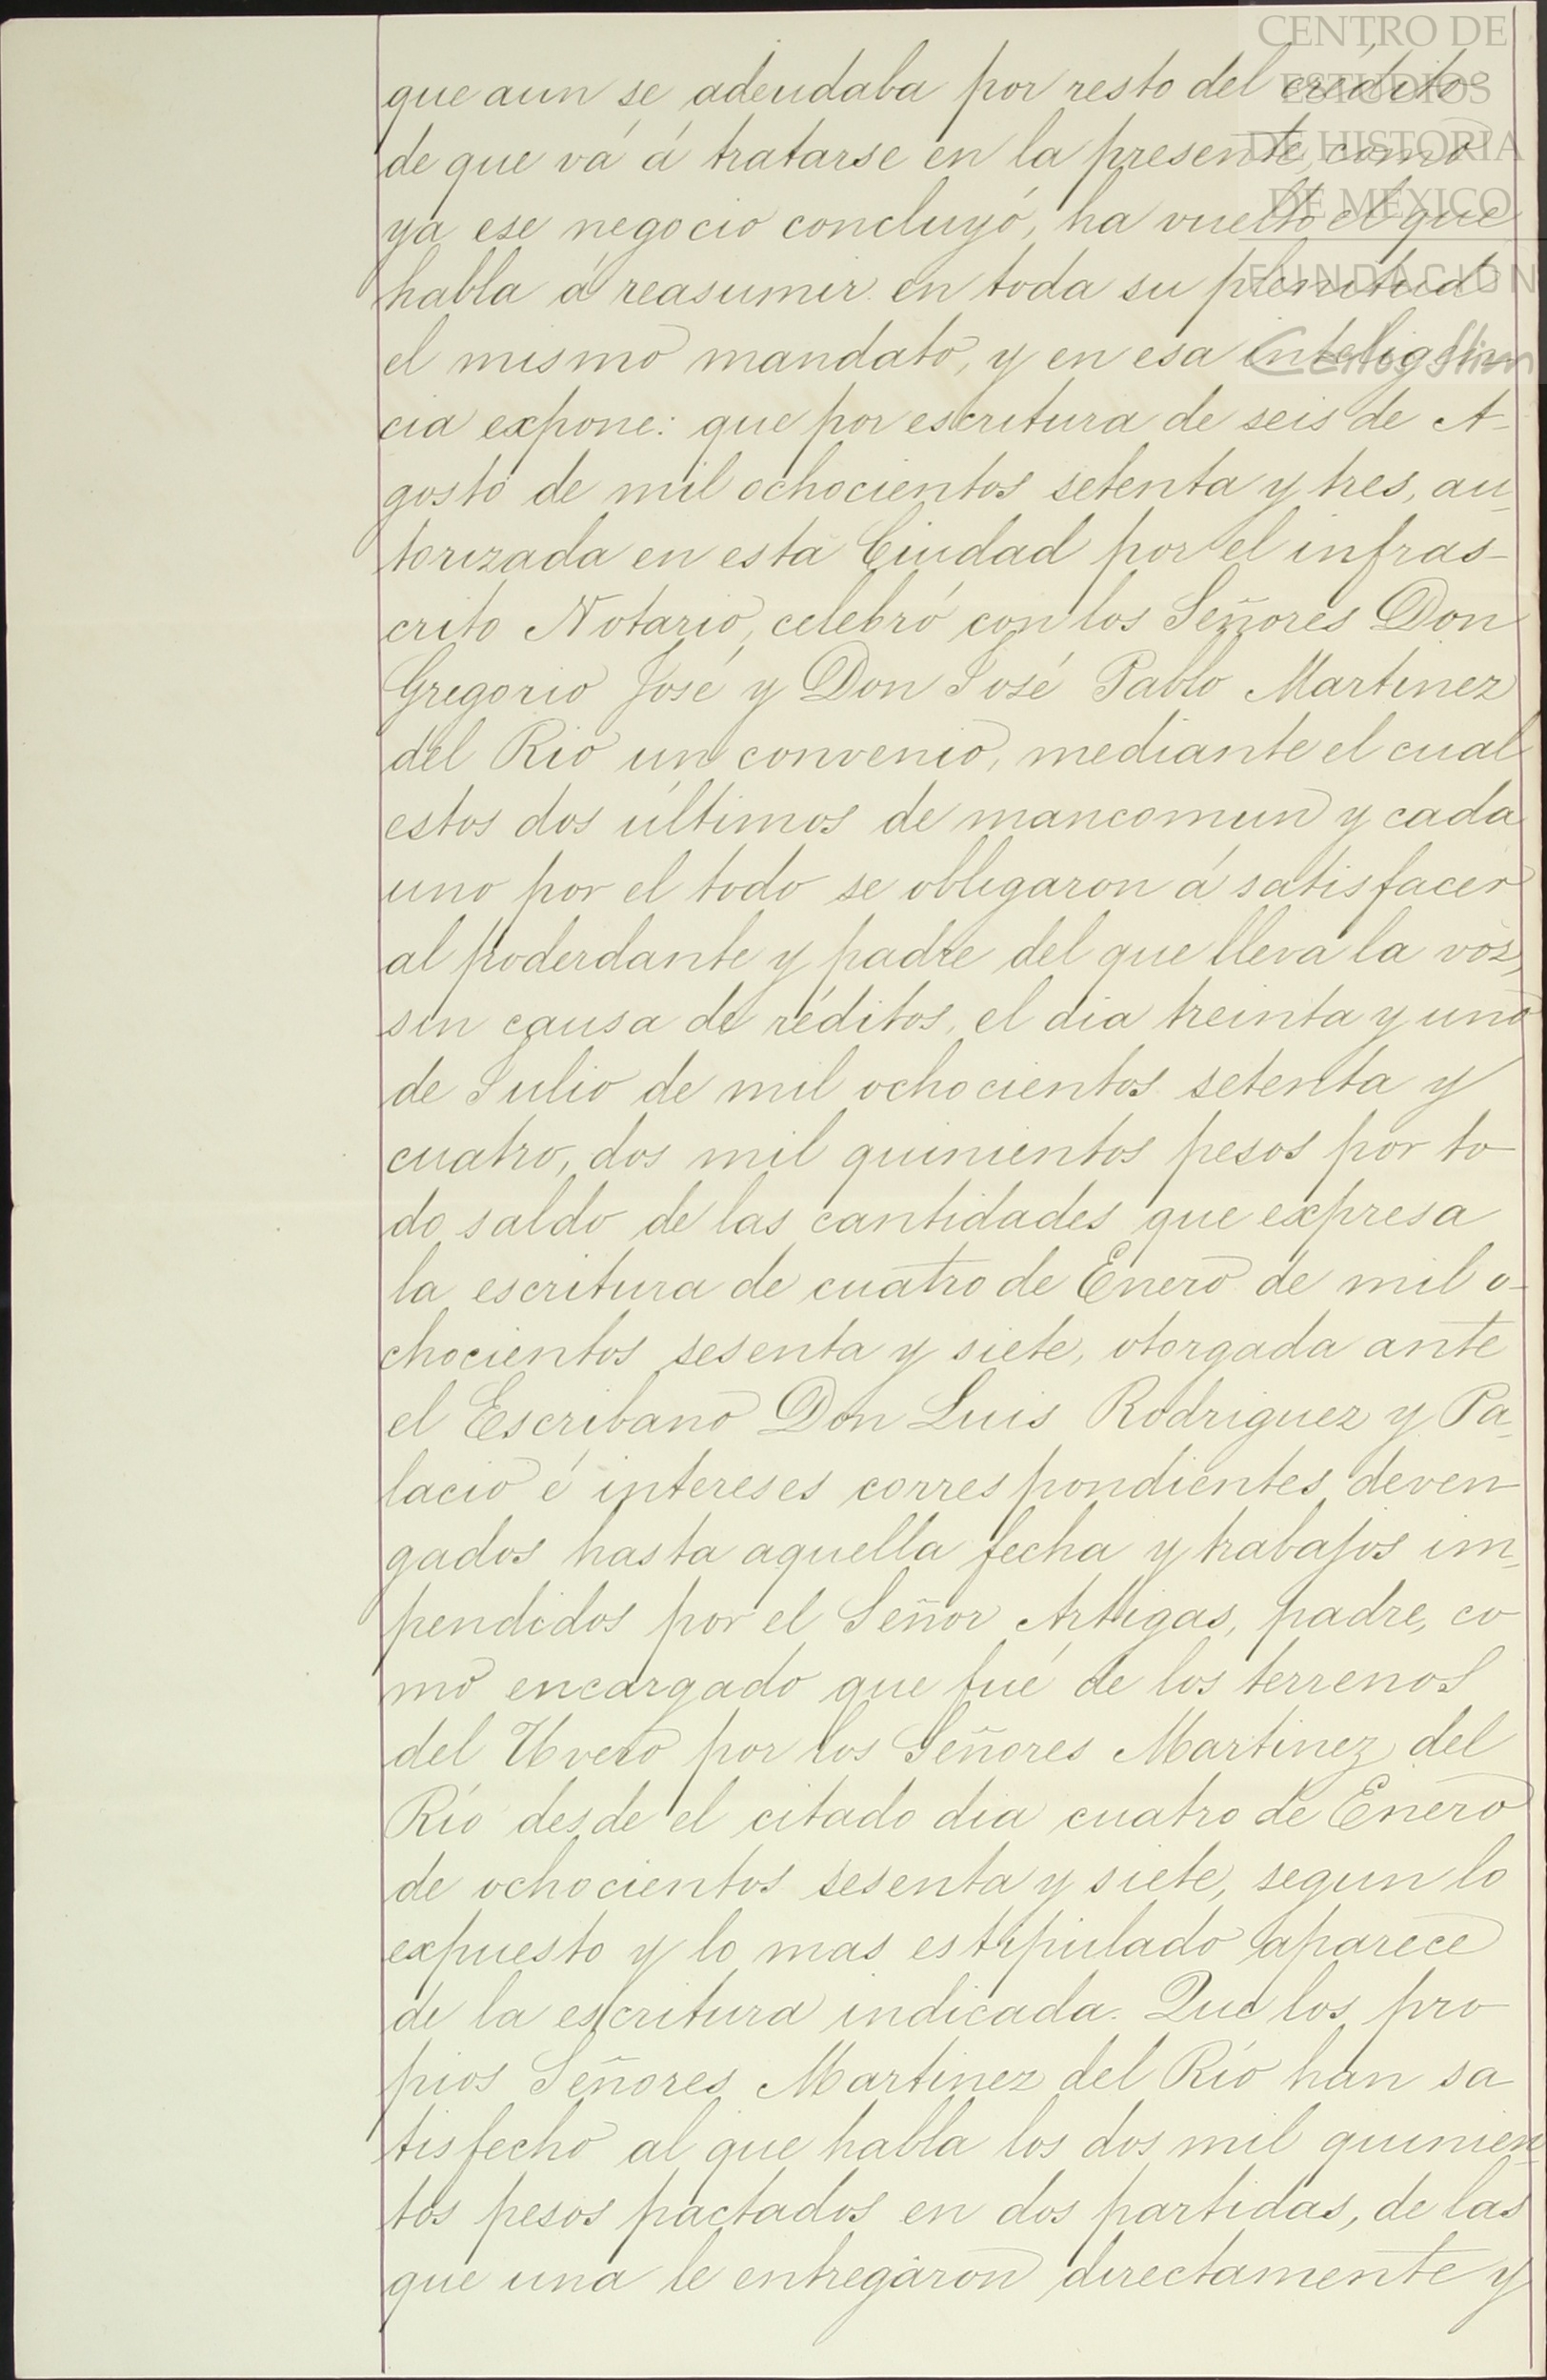 CENTRO DE
ESTUDIOS
DE HISTORIA
DE MEXICO
FUNDACION
Carlos Slim
que aun se adeudaba por resto del crédito
de que vá á tratarse en la presente, como
ya ese negocio concluyó, ha vuelto el que
habla á reasumir en toda su plenitud
el mismo mandato, y en esa inteligen
cia expone: que por escritura de seis de A-
gosto de mil ochocientos setenta y tres, au-
torizada en esta Ciudad por el infras-
crito Notario, celebró con los Señores Don
Gregorio José y Don José Pablo Martinez
del Rio un convenio, mediante el cual
estos dos últimos de mancomun y cada
uno por el todo se obligaron á satisfacer
al poderdante y padre del que lleva la voz,
sin causa de réditos, el dia treinta y uno
de Julio de mil ochocientos setenta y
cuatro, dos mil quinientos pesos por to-
do saldo de las cantidades que expresa
la escritura de cuatro de Enero de mil o-
chocientos sesenta y siete, otorgada ante
el Escribano Don Luis Rodriguez y Pa-
lacio é intereses correspondientes deven-
gados hasta aquella fecha y trabajos im-
pendidos por el Señor Artigas, padre, co-
mo encargado que fué de los terrenos
del Uvero por los Señores Martinez del
Río desde el citado dia cuatro de Enero
de ochocientos sesenta y siete, segun lo
expuesto y lo mas estipulado aparece
de la escritura indicada. Que los pro-
pios Señores Martinez del Río han sa
tisfecho al que habla los dos mil quinien-
tos pesos pactados en dos partidas, de las
que una le entregaron directamente y